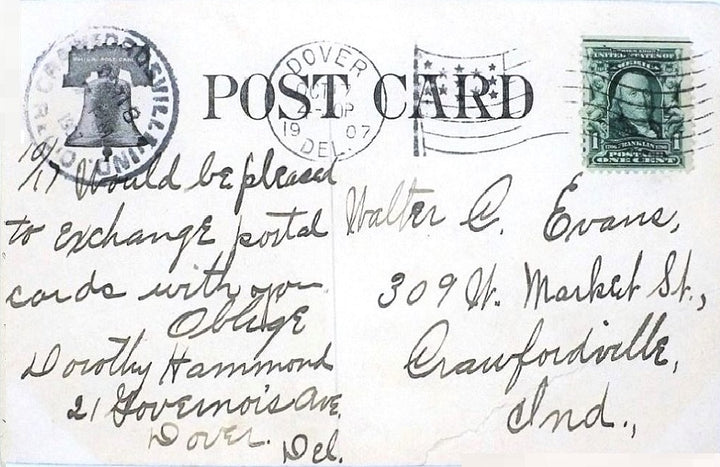 CRAWFORDSVILLE, IND.
DOVER
OCT 17
19 07
DEL.
POST CARD
UNITED STATES OF AMERICA
1
FRANKLIN
POSTAGE
ONE CENT
10/17 Would be pleased
to exchange postal
cards with you.
Oblige
Dorothy Hammond
21 Governois Ave.
Dover.
Del.
Walter C. Evans,
309 W. Market St.,
Crawfordville,
Ind.,